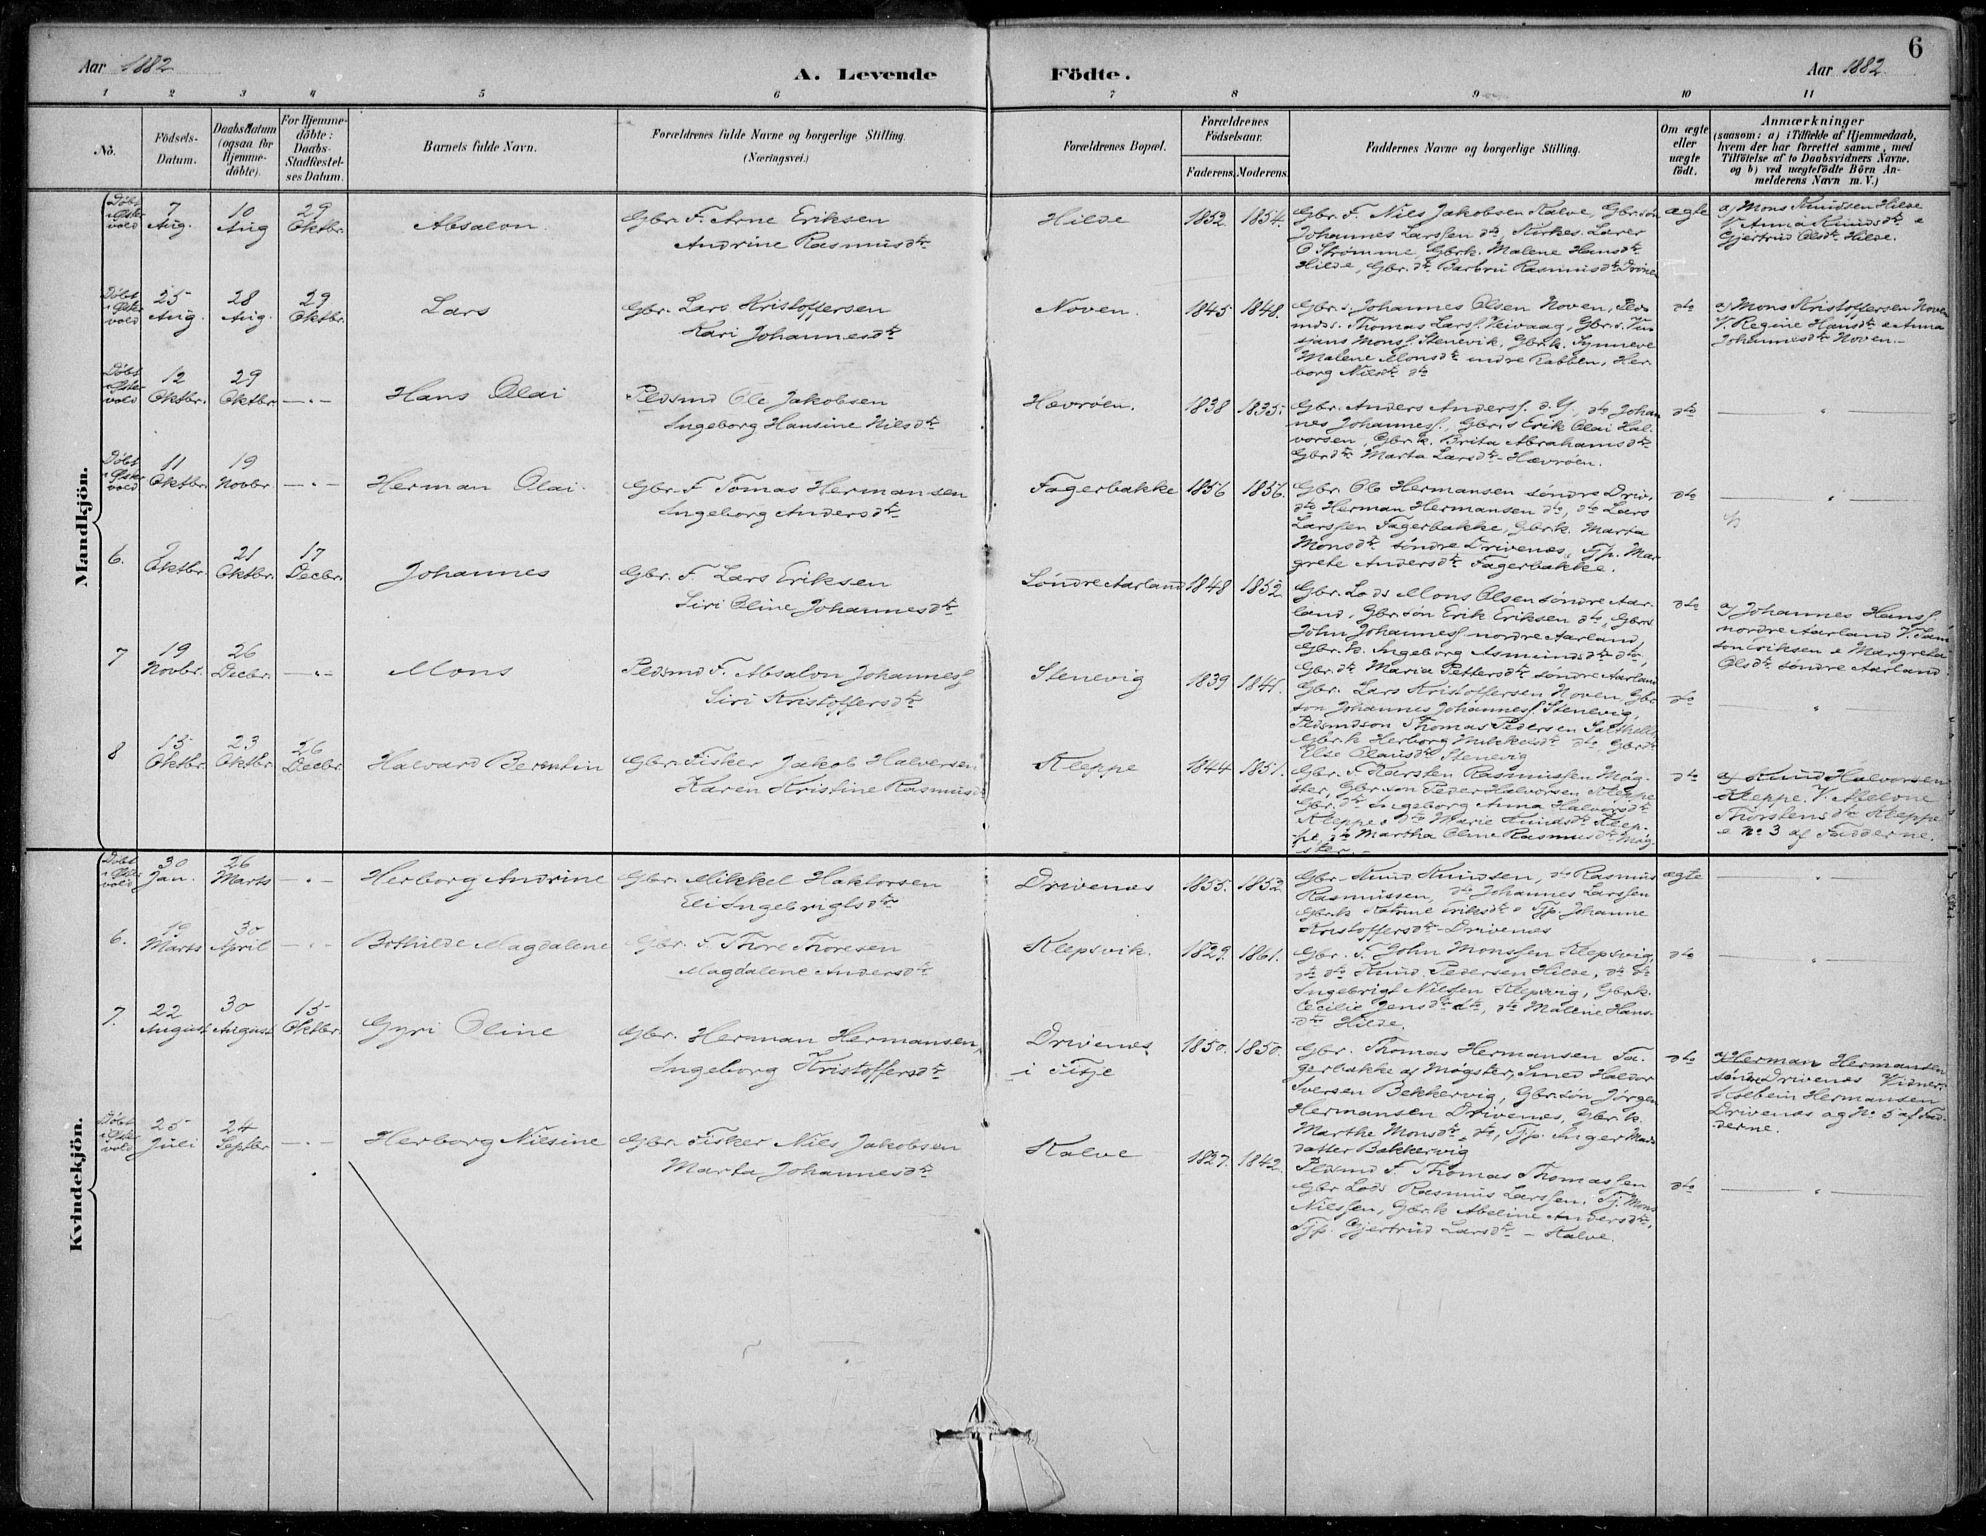 6
Aar 1882
A. Levende Födte.
Aar 1882.
1 2 3 4 5 6 7 8 9 10 11
No.
Födsels-Datum.
Daabsdatum (ogsaa för Hjemme-döbte).
For Hjemme-döbte: Daabs-Stadfæstel-ses Datum.
Barnets fulde Navn.
Forældrenes fulde Navne og borgerlige Stilling.
(Næringsvei.)
Forældrenes Bopæl.
Forældrenes Födselsaar.
Faderens. Moderens.
Faddernes Navne og borgerlige Stilling.
Om ægte eller uægte födt.
Anmærkninger
(saasom: a) i Tilfælde af Hjemmedaab,
hvem der har forrettet samme, med
Tilföielse af to Daabsvidners Navne.
og b) ved uægtefödte Börn An-
melderens Navn m. V.)
Mandkjön.
Døbt i Østervold
7 Aug. 10 Aug 29 Oktbr.
Absalon.
Gbr. F. Arne Eriksen
Andrine Rasmusdtr
Hilde 1852 1854.
Gbr. F. Nils Jakobsen Kalve, Gbr.søn
Johannes Larssen dto, Kirkes. Lærer
O Strømme, Gbrk. Malene Hansdtr
Hilde, Gbr. dtr Barbru Rasmusdtr Drivnes
ægte
a) Mons Knudsen Hilde
V. Anna Knudsdtr e
Gjertrud Olsdtr Hilde.
Døbt i Østervold
25 Aug. 28 Aug. 29 Oktbr.
Lars
Gbr. Lars Kristoffersen
Kari Johannesdtr
Noven. 1845 1848.
Gbr. s. Johannes Olsen Noven, Peds
mds. Thomas Larss. Veivaag, Gbr.s.
Monss. Stenevik, Gbrk. Synneve
Malene Monsdtr indre Rabben, Her-
borg Nilsdtr dto
dto
a) Mons Kristoffersen Noven
V. Regine Hansdtr e Anna
Johannesdtr Noven.-
Døbt i Østervold
12 Oktbr. 29 Oktbr. — " —
Hans Olai
Pedsmd Ole Jakobsen
Ingeborg Hansine Nilsdtr
Hævrøen. 1838 1835.
Gbr. Anders Anderss. d.Y, dto Johan
nes Johanness., Gbr.s Erik Olai Hal-
vorsen, Gbr k. Brita Abrahamsdtr
Gbrdtr Marta Larsdtr Hævrøen.
dto — " —
Døbt i Østervold
11 Oktbr. 19 Novbr — " —
Herman Olai.
Gbr. F. Tomas Hermansen
Ingeborg Andersdtr
Fagerbakke 1856 1856.
Gbr. Ole Hermansen søndre Driv.
dto Herman Hermansen dto, dto Lars
Larssen Fagerbakke, Gbrk. Marta
Monsdtr søndre Drivenes, Tjp. Mar-
grete Andersdtr Fagerbakke.
dto — " —
6. 2 Oktbr. 21 Oktbr. 17 Decbr.
Johannes
Gbr. F. Lars Eriksen
Siri Oline Johannesdtr
Søndre Aarland 1848 1852.
Gbr. Lods Mons Olsen søndre Aar-
land, Gbr.søn Erik Eriksen dto, Gbr.s
John Johanness. nordre Aarland,
Gbr. k. Ingeborg Asmundsdtr dto,
Gbr. dtr Maria Pettersdtr søndre Aarland
dto
a) Johannes Hanss.
nordre Aarland V. Sam
son Eriksen e Margreta
Olsdtr søndre Aarland.
7 19 Novbr. 26 Decbr. — " —
Mons
Pedsmd F. Absalon Johanness.
Siri Kristoffersdtr
Stenevig 1839 1841.
Gbr. Lars Kristoffersen Noven, Gbr
søn Johannes Johanness. Stenevig,
Pedsmdson Thomas Pedersen Salthelle,
Gbr.k Herborg Mikkelsdtr dto, Gbr.dtr
Else Olausdtr Stenevig
dto — " —
8 15 Oktbr. 23 Oktbr. 26 Decbr.
Halvard Berentin
Gbr. Fisker Jakob Halversen
Karen Kristine Rasmusd
Kleppe 1844 1851.
Gbr. F Karsten Rasmussen Møg-
ster, Gbr. søn Peder Halvorsen Kleppe
Gbr. dtr Ingeborg Anna Halvorsdtr
Kleppe, dto Marie Knudsdtr Klep-
pe, dto Martha Oline Rasmusdtr Møg-
ster.-
dto
a) Knud Halvorsen
Kleppe. V. Abelone
Thorstensdtr Kleppe
e No. 3 af Fadderne.
Kvindekjön.
Døbt i Østervold
30 Jan. 26 Marts — " —
Herborg Andrine
Gbr. Mikkel Haktorsen
Eli Ingebrigtsdtr
Drivenes 1855. 1852.
Gbr. Knud Knudsen, dto Rasmus
Rasmussen, dto Johannes Larssen
Gbrk Katrine Eriksdtr Tjp. Johanne
Kristoffersdtr Drivenes
ægte — " —
6. 19 Marts 30 April — " —
Bothilde Magdalene
Gbr. F. Thore Thoresen
Magdalene Andersdtr
Klepsvik. 1829. 1861.
Gbr. F. John Monssen Klepsvig,
dto dto Knud Pedersen Hilde, dto dto
Ingebrigt Nilssen Klepsvig, Gbrk.
Cecilie Jensdtr dto, dto Malene Hans-
dtr Hilde.
dto — " —
7. 22 August 30 August 15 Oktbr.
Gyri Oline
Gbr. Herman Hermansen,
Ingeborg Kristoffersdtr
Drivenes
i Fitje
1850. 1850.
Gbr. Thomas Hermansen Fa-
gerbakke af Møgster, Smed Haldor
Iversen Bekkervig, Gbr.søn Jørgen
Hermansen Drivenes, Gbr. k.
Marthe Monsdtr dto, Tjp. Inger Mads
datter Bekkervig
dto
a) Herman Hermansen
søndre Drivenes Vidner
Kolbein Hermansen
Drivenes og No. 5 af Fad-
derne.
Døbt i Østervold
25 Juli 24 Septbr — " —
Herborg Nilsine
Gbr. Fisker Nils Jakobsen
Marta Johannesdtr
Kalve 1827. 1842.
Pedsmd F. Thomas Thomassen
Gbr Lods Rasmus Larssen. Tj. Mons
Nilssen, Gbr.k Abeline Andersdtr,
Tjp. Gjertrud Larsdtr - Kalve.
dto — " —